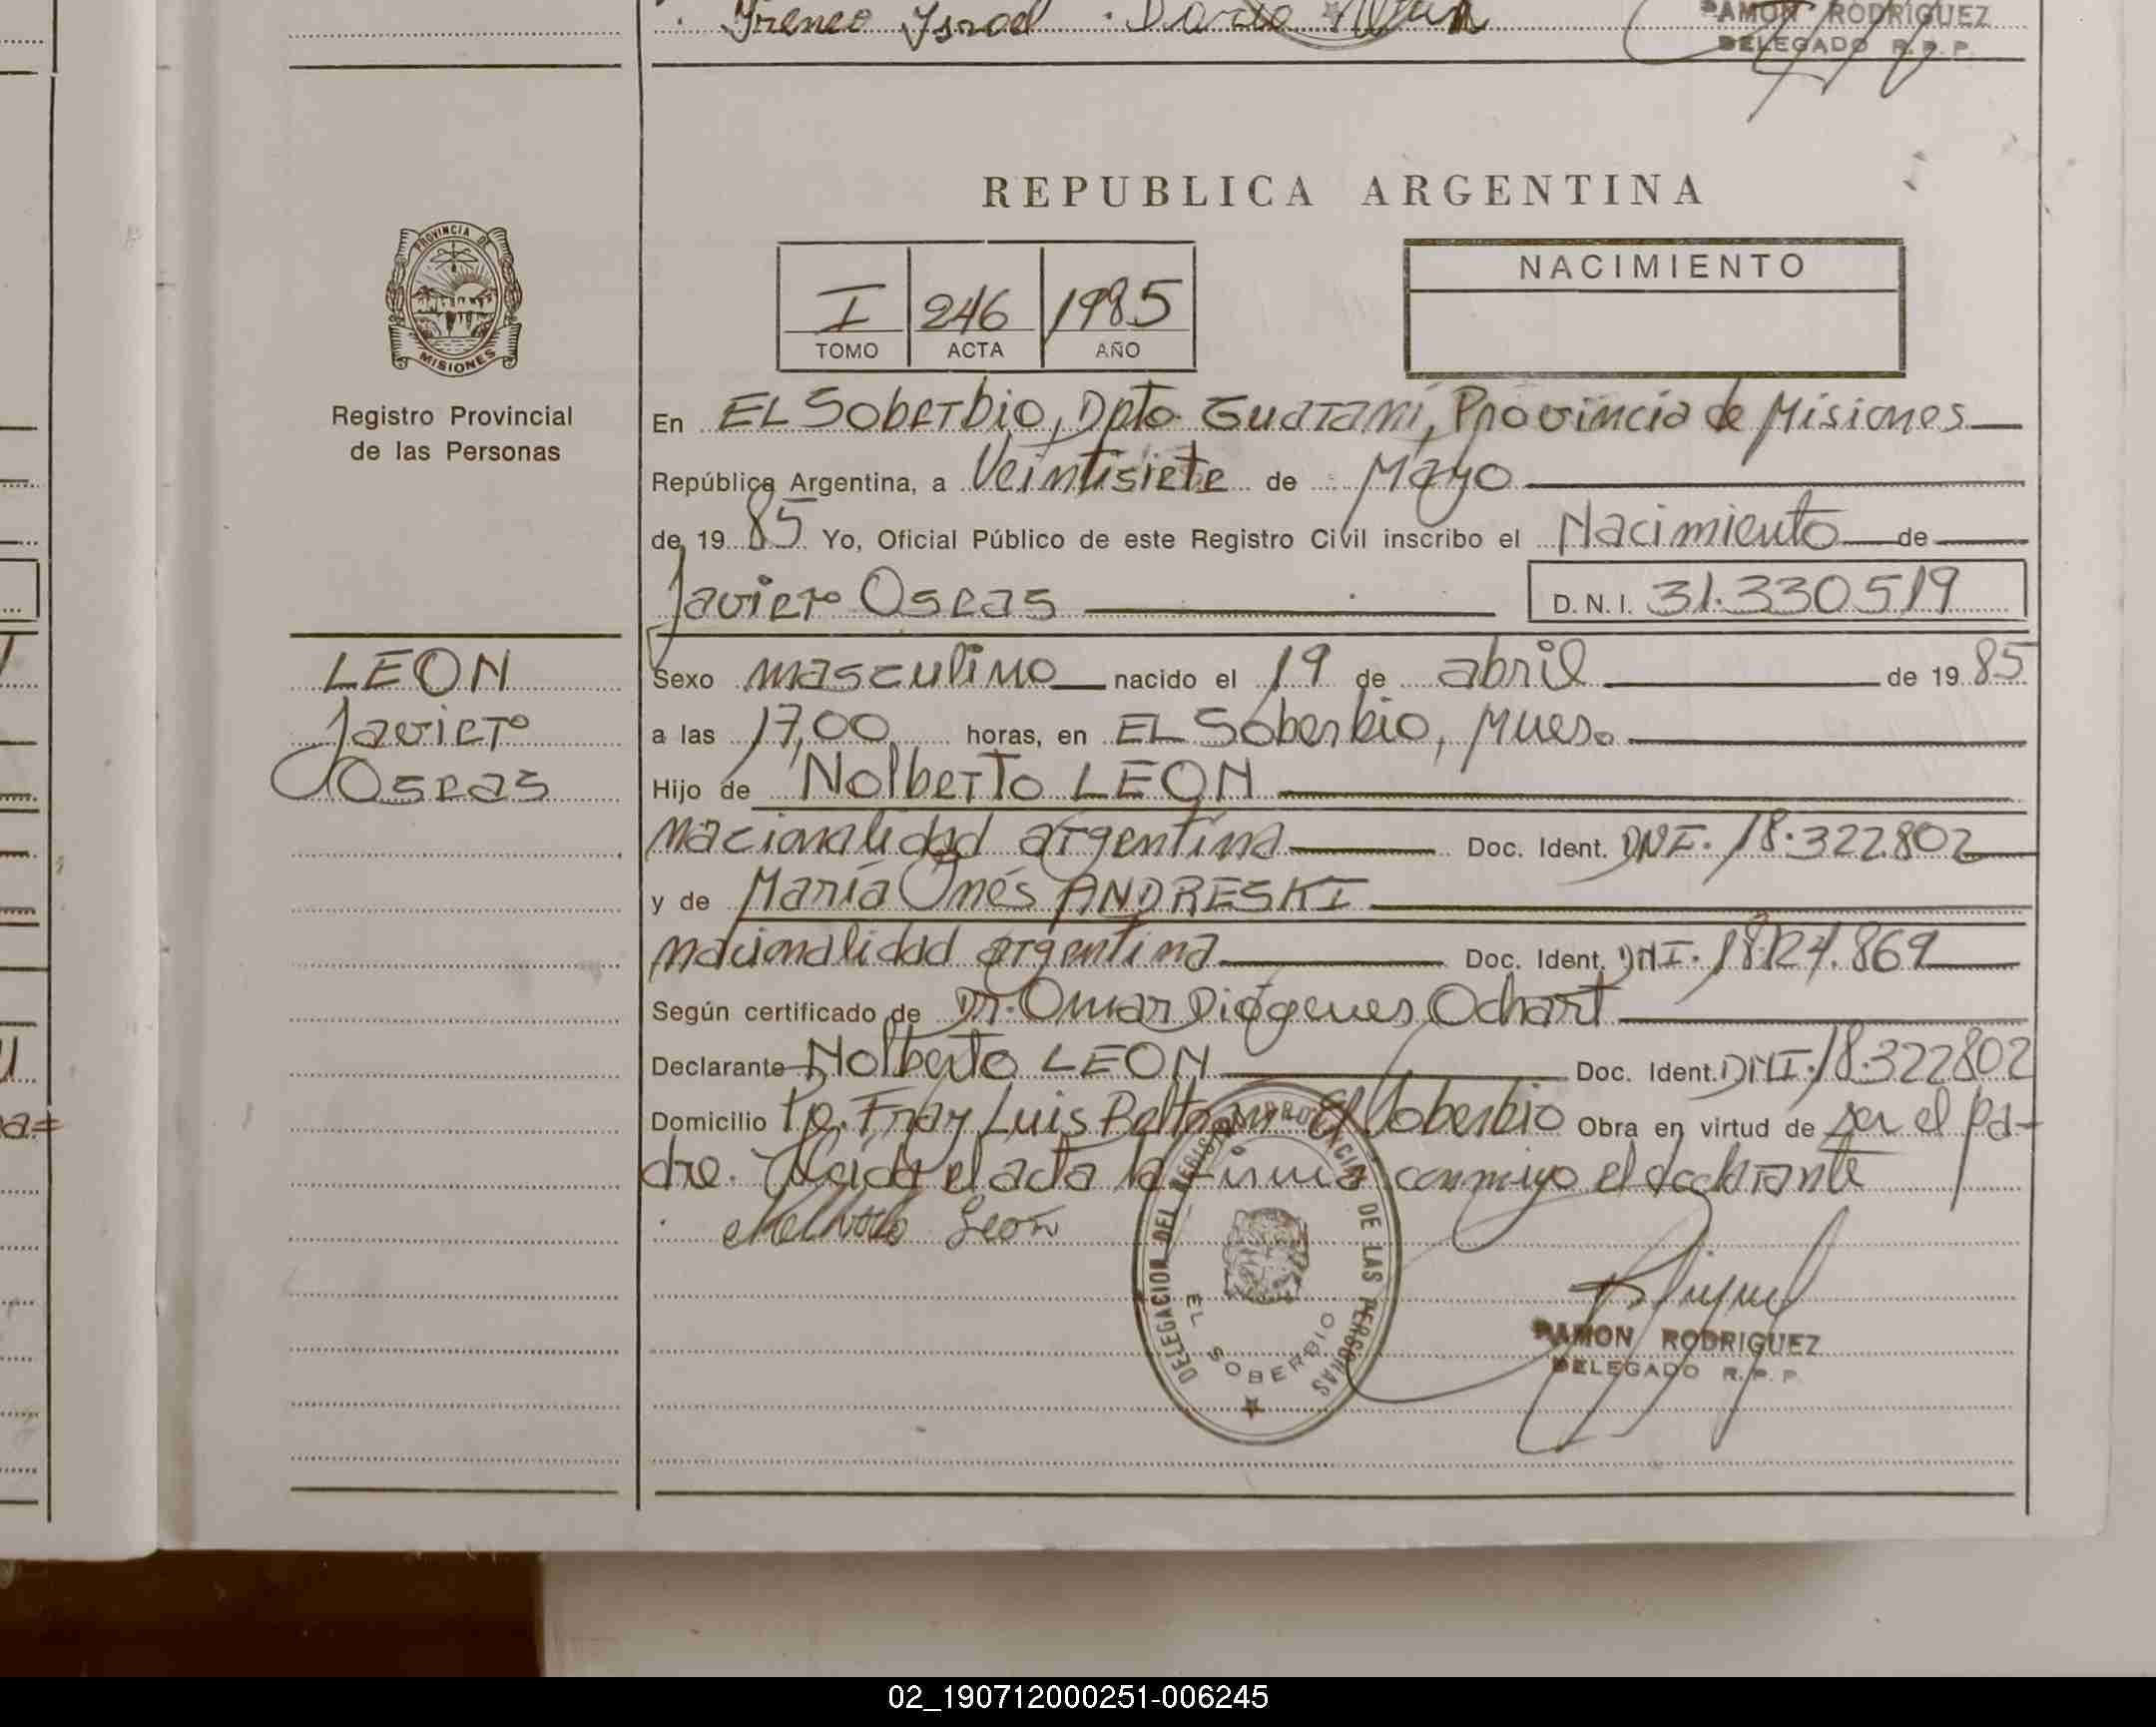 Ireneo Israel
RAMON RODRIGUEZ
DELEGADO R.P.P.
REPUBLICA ARGENTINA
PROVINCIA DE
MISIONES
Registro Provincial
de las Personas
I 246 1985
TOMO ACTA AÑO
NACIMIENTO
En EL Soberbio, Dpto Guaraní, Provincia de Misiones
República Argentina, a Veintisiete de Mayo
de 19 85 Yo, Oficial Público de este Registro Civil inscribo el Nacimiento de
Javier Oseas D.N.I. 31.330519
LEON
Javier
Oseas
Sexo masculino nacido el 19 de abril de 19 85
a las 17,00 horas, en EL Soberbio, Mnes.
Hijo de Nolberto LEON
nacionalidad argentina Doc. Ident. DNI. 18.322802
y de María Inés ANDRESKI
nacionalidad argentina Doc. Ident. DNI. 18.124.869
Según certificado de Dr. Omar Diógenes Ochart
Declarante Nolberto LEON Doc. Ident. DNI. 18.322802
Domicilio Pje. Fray Luis Beltran El Soberbio Obra en virtud de ser el pa-
dre. Leida el acta la firma conmigo el declarante
Leon
DELEGACION DEL REGISTRO PROVINCIAL DE LAS PERSONAS
EL SOBERBIO
RAMON RODRIGUEZ
DELEGADO R.P.P.
02_190712000251-006245